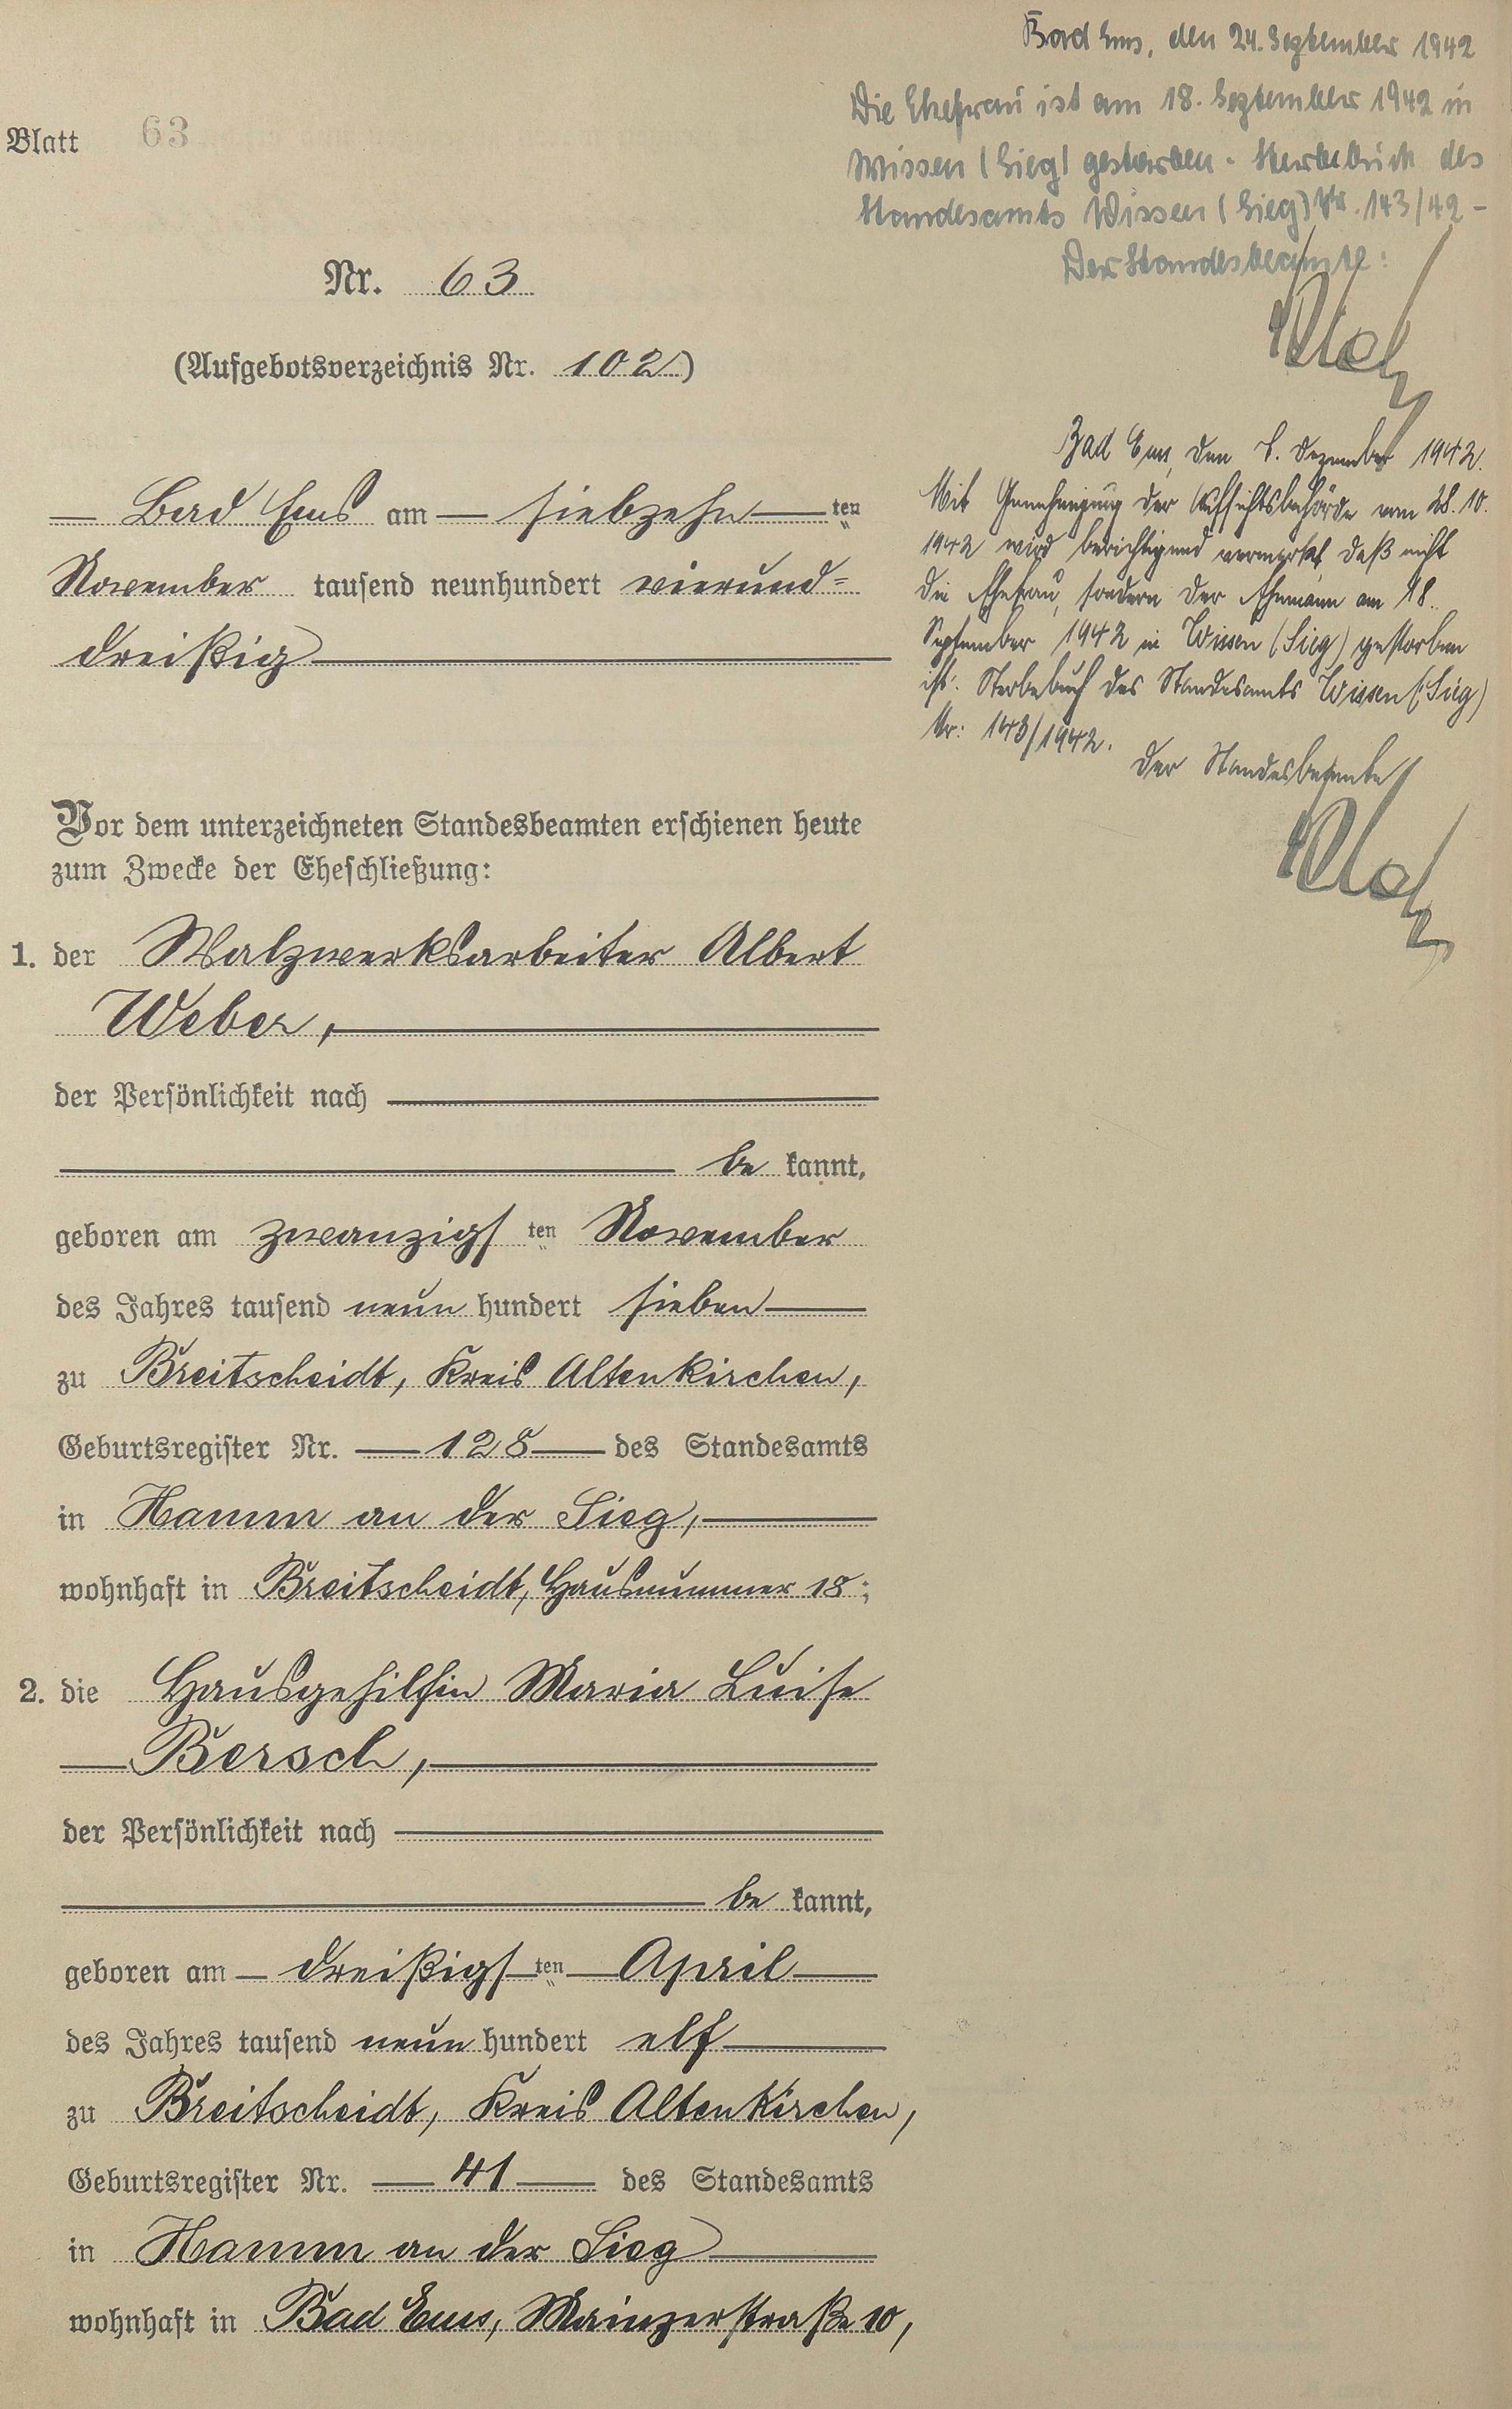 Bad Ems, den 24. September 1942
Die Ehefrau ist am 18. September 1942 in
Wissen (Sieg) gestorben - Sterbebuch des
Standesamts Wissen (Sieg) Nr. 143/42 -
Der Standesbeamte:
Blatt 63
Nr. 63
(Aufgebotsverzeichnis Nr. 102)
Bad Ems, den 8. Dezember 1942.
Mit Genehmigung der Aufsichtsbehörde vom 28.10.
1942 wird berichtigend vermerkt, daß nicht
die Ehefrau, sondern der Ehemann am 18.
September 1942 in Wissen (Sieg) gestorben
ist. Sterbebuch des Standesamts Wissen (Sieg)
Nr: 143/1942.
Der Standesbeamte
— Bad Ems am — siebzehn — ten
November tausend neunhundert vierund=
dreißig
Vor dem unterzeichneten Standesbeamten erschienen heute
zum Zwecke der Eheschließung:
1. der Walzwerksarbeiter Albert
Weber,
der Persönlichkeit nach
be kannt,
geboren am zwanzigs ten November
des Jahres tausend neun hundert sieben
zu Breitscheidt, Kreis Altenkirchen,
Geburtsregister Nr. — 128 — des Standesamts
in Hamm an der Sieg,
wohnhaft in Breitscheidt, Hausnummer 18;
2. die Hausgehilfin Maria Luise
Bersch,
der Persönlichkeit nach
be kannt,
geboren am — dreißigs ten — April
des Jahres tausend neun hundert elf
zu Breitscheidt, Kreis Altenkirchen,
Geburtsregister Nr. — 41 — des Standesamts
in Hamm an der Sieg
wohnhaft in Bad Ems, Mainzerstraße 10,